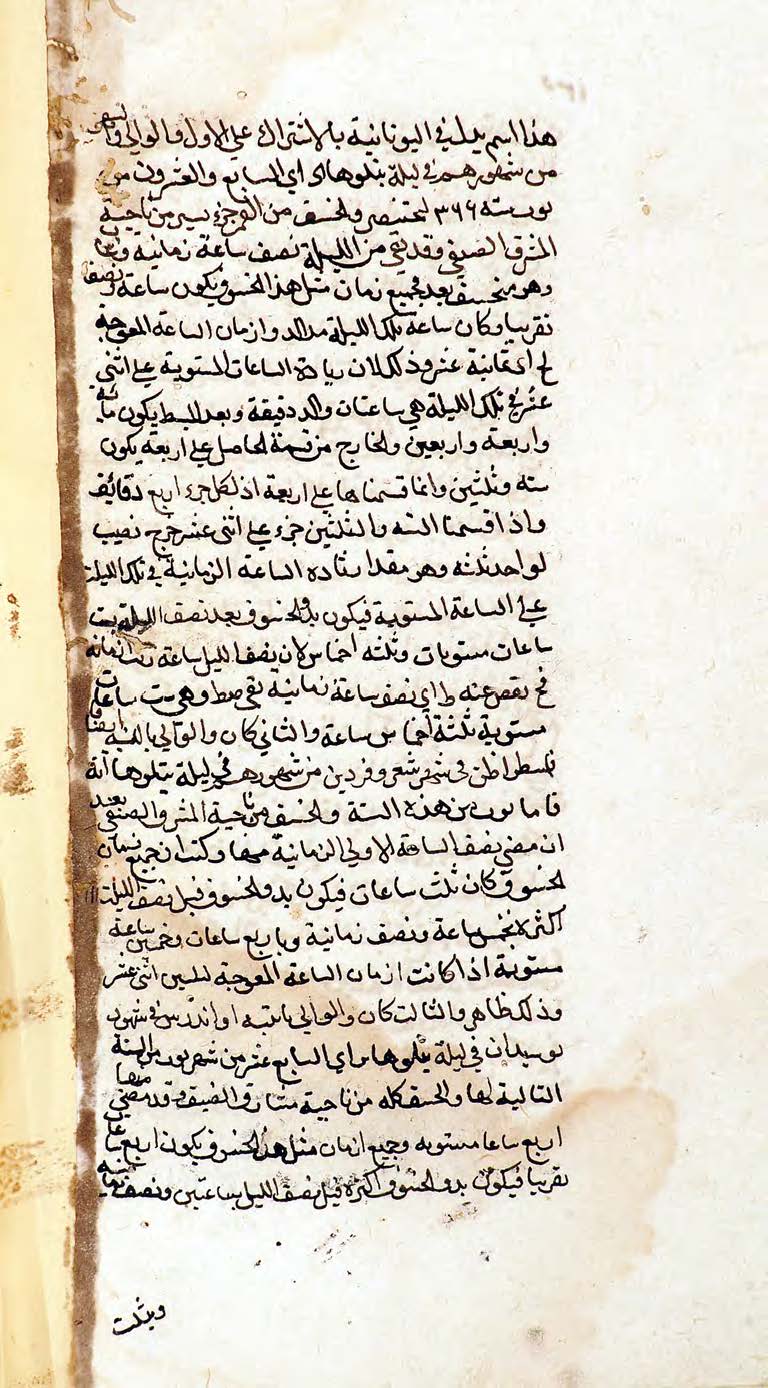 هذا اسم يدل في اليونانية بالاشتراك على الاول والوالي
من شهورهم في ليلة يتلوها اي السابع والعشرون من
توت سنه ٣٦٦ لبختنصر وانخسف من القمر جزء يسير من ناحية
المشرق الصيفي وقد بقي من الليلة نصف ساعة زمانية وغاب
وهو منخسف بعد فجميع زمان مثل هذا الخسوف يكون ساعة ونصفا
تقريبا وكان ساعة تلك الليلة وازمان الساعة المعوجة
يح اي ثمانية عشر وذلك لان زيادة الساعات المستوية على اثني
عشر في تلك الليلة هي ساعتان والد دقيقة وبعد البسط يكون مائة
واربعة واربعين والخارج من قسمة الحاصل على اربعة يكون
سته وثلثين وانما قسمناها على اربعة اذ لكل جزء اربع دقائق
واذا قسمنا الستة والثلثين جزء على اثنى عشر خرج نصيب
لواحد ثلثه وهو مقدار زيادة الساعة الزمانية في تلك الليلة
على الساعة المستوية فيكون بدو الخسوف بعد نصف الليلة بست
ساعات مستويات وثلثه اخماس لان نصف الليل ساعة
نقص عنه ط اي نصف ساعة زمانية بقي صط وهي ست ساعات
مستوية ثلثة اخماس ساعة والثاني كان والوالي باثينية ايضا
في شهر من شهورهم في ليلة يتلوها
من هذه السنة وانخسف من ناحية المشرق الصيفي بعد
ان مضى نصف الساعة الاولى الزمانية منها وكنت ان جميع زمان
الخسوف كان ثلث ساعات فيكون بدو الخسوف قبل نصف الليلة
اكثره بخمس ساعة ونصف زمانية وباربع ساعات وخمس ساعة
مستوية اذا كانت ازمان الساعة المعوجة اثنى عشر
وذلك ظاهر والثالث كان والوالي باثينيه في شهور
بوسيدان في ليلة يتلوها اي السابع عشر من شهر توت من السنة
التالية لها وانخسف كله من ناحية مشارق الصيف وقد مضى منها
اربع ساعات مستويه وجميع ازمان مثل هذا الخسوف يكون اربع ساعات
تقريبا فيكون بدو الخسوف اكثره قبل نصف الليل بساعتين ونصف زمانية
وبثلث